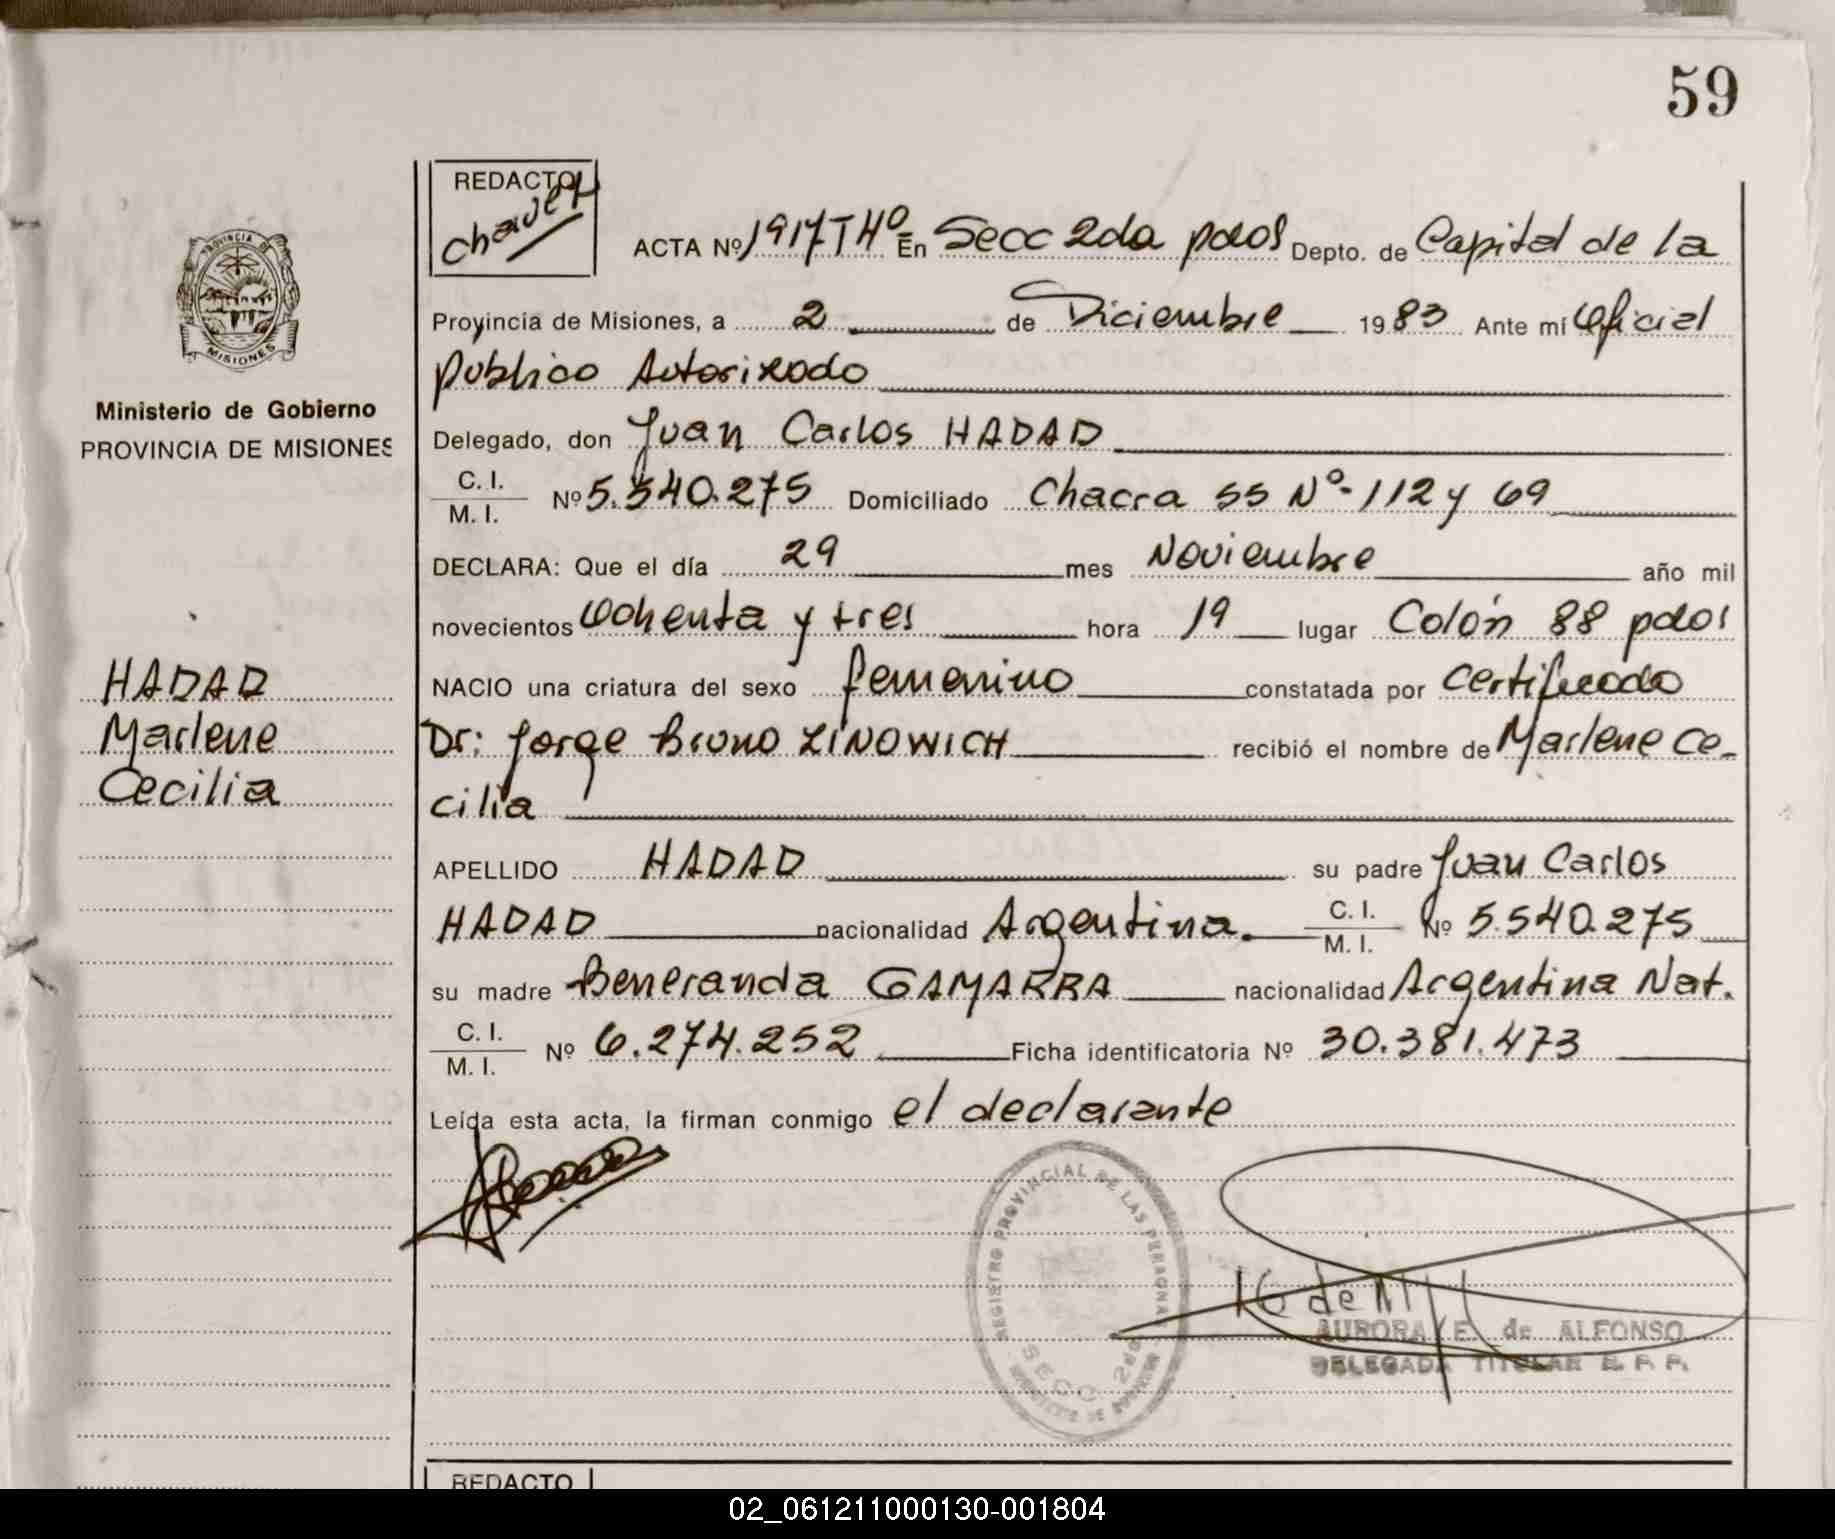 59
REDACTO
Chavez
ACTA Nº 1917 T 4º En Secc 2da pdas Depto. de Capital de la
Provincia de Misiones, a 2 de Diciembre 1983 Ante mí Oficial
publico Autorizado
Delegado, don Juan Carlos HADAD
C. I.
M. I. Nº 5.540.275 Domiciliado Chacra 55 Nº 112 y 69
DECLARA: Que el día 29 mes Noviembre año mil
novecientos Ochenta y tres hora 19 lugar Colón 88 pdas
NACIO una criatura del sexo femenino constatada por Certificado
Dr: Jorge Bruno ZINOWICH recibió el nombre de Marlene Ce-
cilia
APELLIDO HADAD su padre Juan Carlos
HADAD nacionalidad Argentina. C. I. M. I. Nº 5.540.275
su madre Beneranda GAMARRA nacionalidad Argentina Nat.
C. I.
M. I. Nº 6.274.252 Ficha identificatoria Nº 30.381.473
Leída esta acta, la firman conmigo el declarante
PROVINCIA DE
MISIONES
Ministerio de Gobierno
PROVINCIA DE MISIONES
HADAD
Marlene
Cecilia
REGISTRO PROVINCIAL DE LAS PERSONAS
SECC 2da
AURORA E. de ALFONSO
DELEGADA TITULAR R. P. P.
REDACTO
02_061211000130-001804